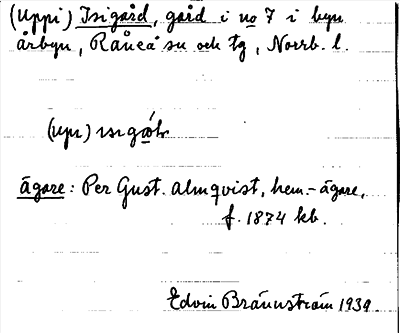 (Uppi) Isigård, gård i no 7 i byn
årbyn, Råneå sn och tg, Norrb. l.
(upi)
ägare: Per Gust. Almqvist, hem.-ägare,
f. 1874 kb.
Edvin Brännström 1939